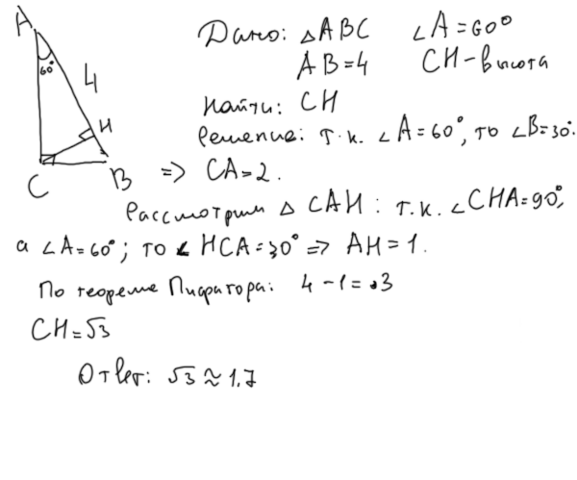 A
60°
4
H
C
B
Дано: △ABC ∠A=60°
AB=4 CH-высота
Найти: CH
Решение: т.к. ∠A=60°, то ∠B=30°.
=> CA=2.
Рассмотрим △ CAH: т.к. ∠CHA=90°,
а ∠A=60°; то ∠HCA=30° => AH=1.
По теореме Пифагора: 4-1=3
CH=√3
Ответ: √3≈1.7